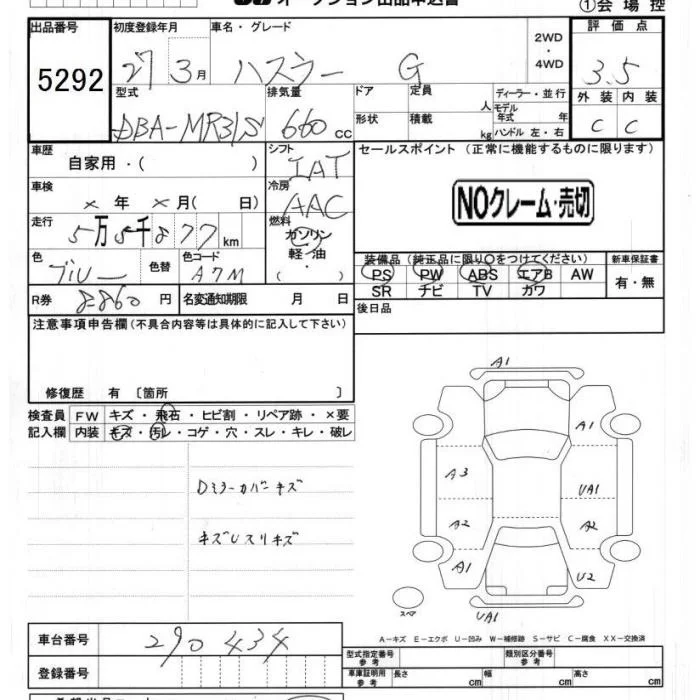 オークション出品申込書
①会場控
出品番号 初度登録年月 車名・グレード 2WD・4WD 評価点
5292 27 3月 ハスラー G 3.5
型式 排気量 ドア 定員 人 ディーラー・並行 外装 内装
DBA-MR31S 660cc 形状 積載 kg モデル年式 年 ハンドル 左・右 C C
車歴 シフト セールスポイント (正常に機能するものに限ります)
自家用・( ) IAT
車検 冷房 NOクレーム・売切
×年 ×月( 日) AAC
走行 燃料
5万5千877km ガソリン
軽・油
・
( )
装備品 (純正品に限り○をつけてください) 新車保証書
色 色替 色コード PS PW ABS エアB AW 有・無
ブルー A7M SR チビ TV カワ
R券 8860円 名変通知期限 月 日 後日品
注意事項申告欄 (不具合内容等は具体的に記入して下さい)
修復歴 有 〔箇所 〕
検査員 FW キズ・飛石・ヒビ割・リペア跡・×要
記入欄 内装 キズ・汚レ・コゲ・穴・スレ・キレ・破レ
Dミラーカバーキズ
キズUスリキズ
A1
A1
A3
UA1
A2 A2
A1 U2
スペア
UA1
A-キズ E-エクボ U-凹み W-補修跡 S-サビ C-腐食 XX-交換済
車台番号 290434
型式指定番号 参考 類別区分番号 参考
登録番号 車庫証明用 参考 長さ cm 幅 cm 高さ cm